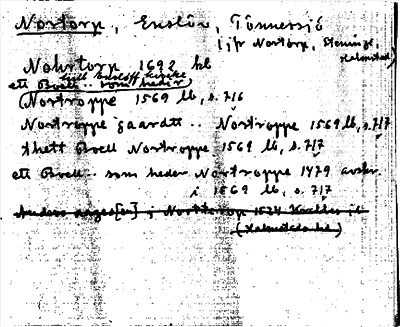 Nortorp, Enslöv, Tönnersjö
(jfr Nortorp, Steninge, Halmstad)
Nohrtorp 1692 hl
till Ensloff kircke
ett Boell .. som heder
(Nortroppe 1569 lb, s. 716
Nortroppe gaardtt .. Nortroppe 1569 lb, s. 717
thett Boell Nortroppe 1569 lb, s. 717
ett Boell .. som heder Nortroppe 1479 avskr.
i 1569 lb, s. 717
Anders i 1534
(Halmstads hd)